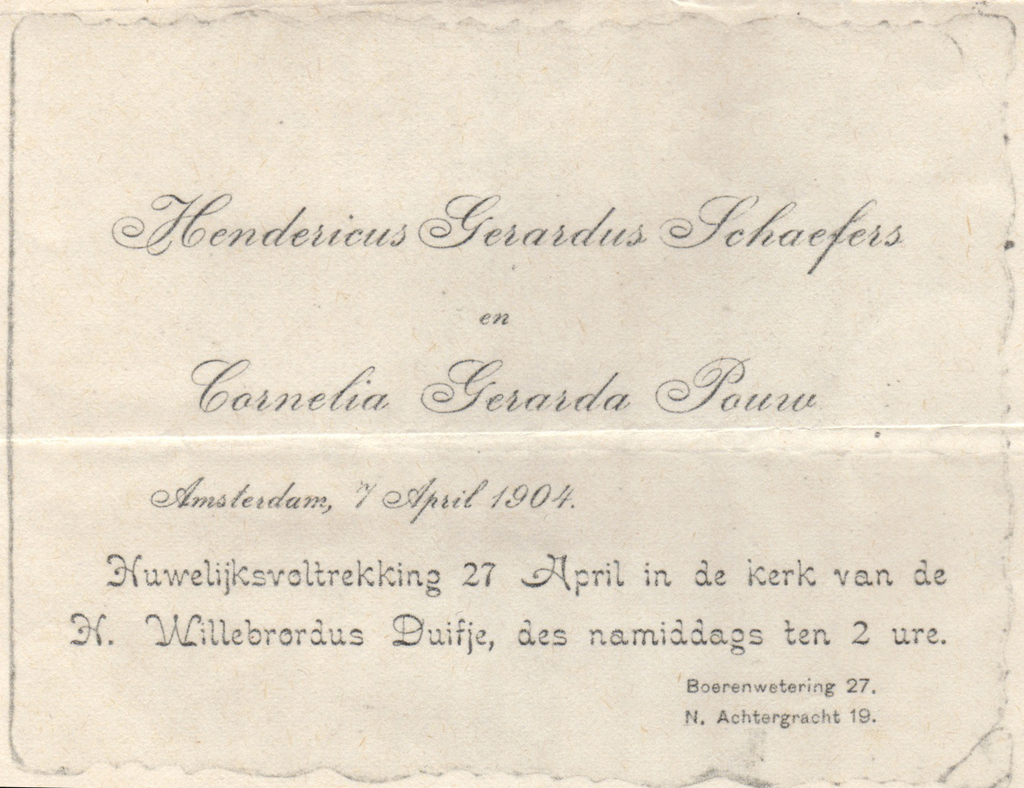 Hendericus Gerardus Schaefers
en
Cornelia Gerarda Pouw
Amsterdam, 7 April 1904.
Huwelijksvoltrekking 27 April in de kerk van de
H. Willebrordus Duifje, des namiddags ten 2 ure.
Boerenwetering 27.
N. Achtergracht 19.